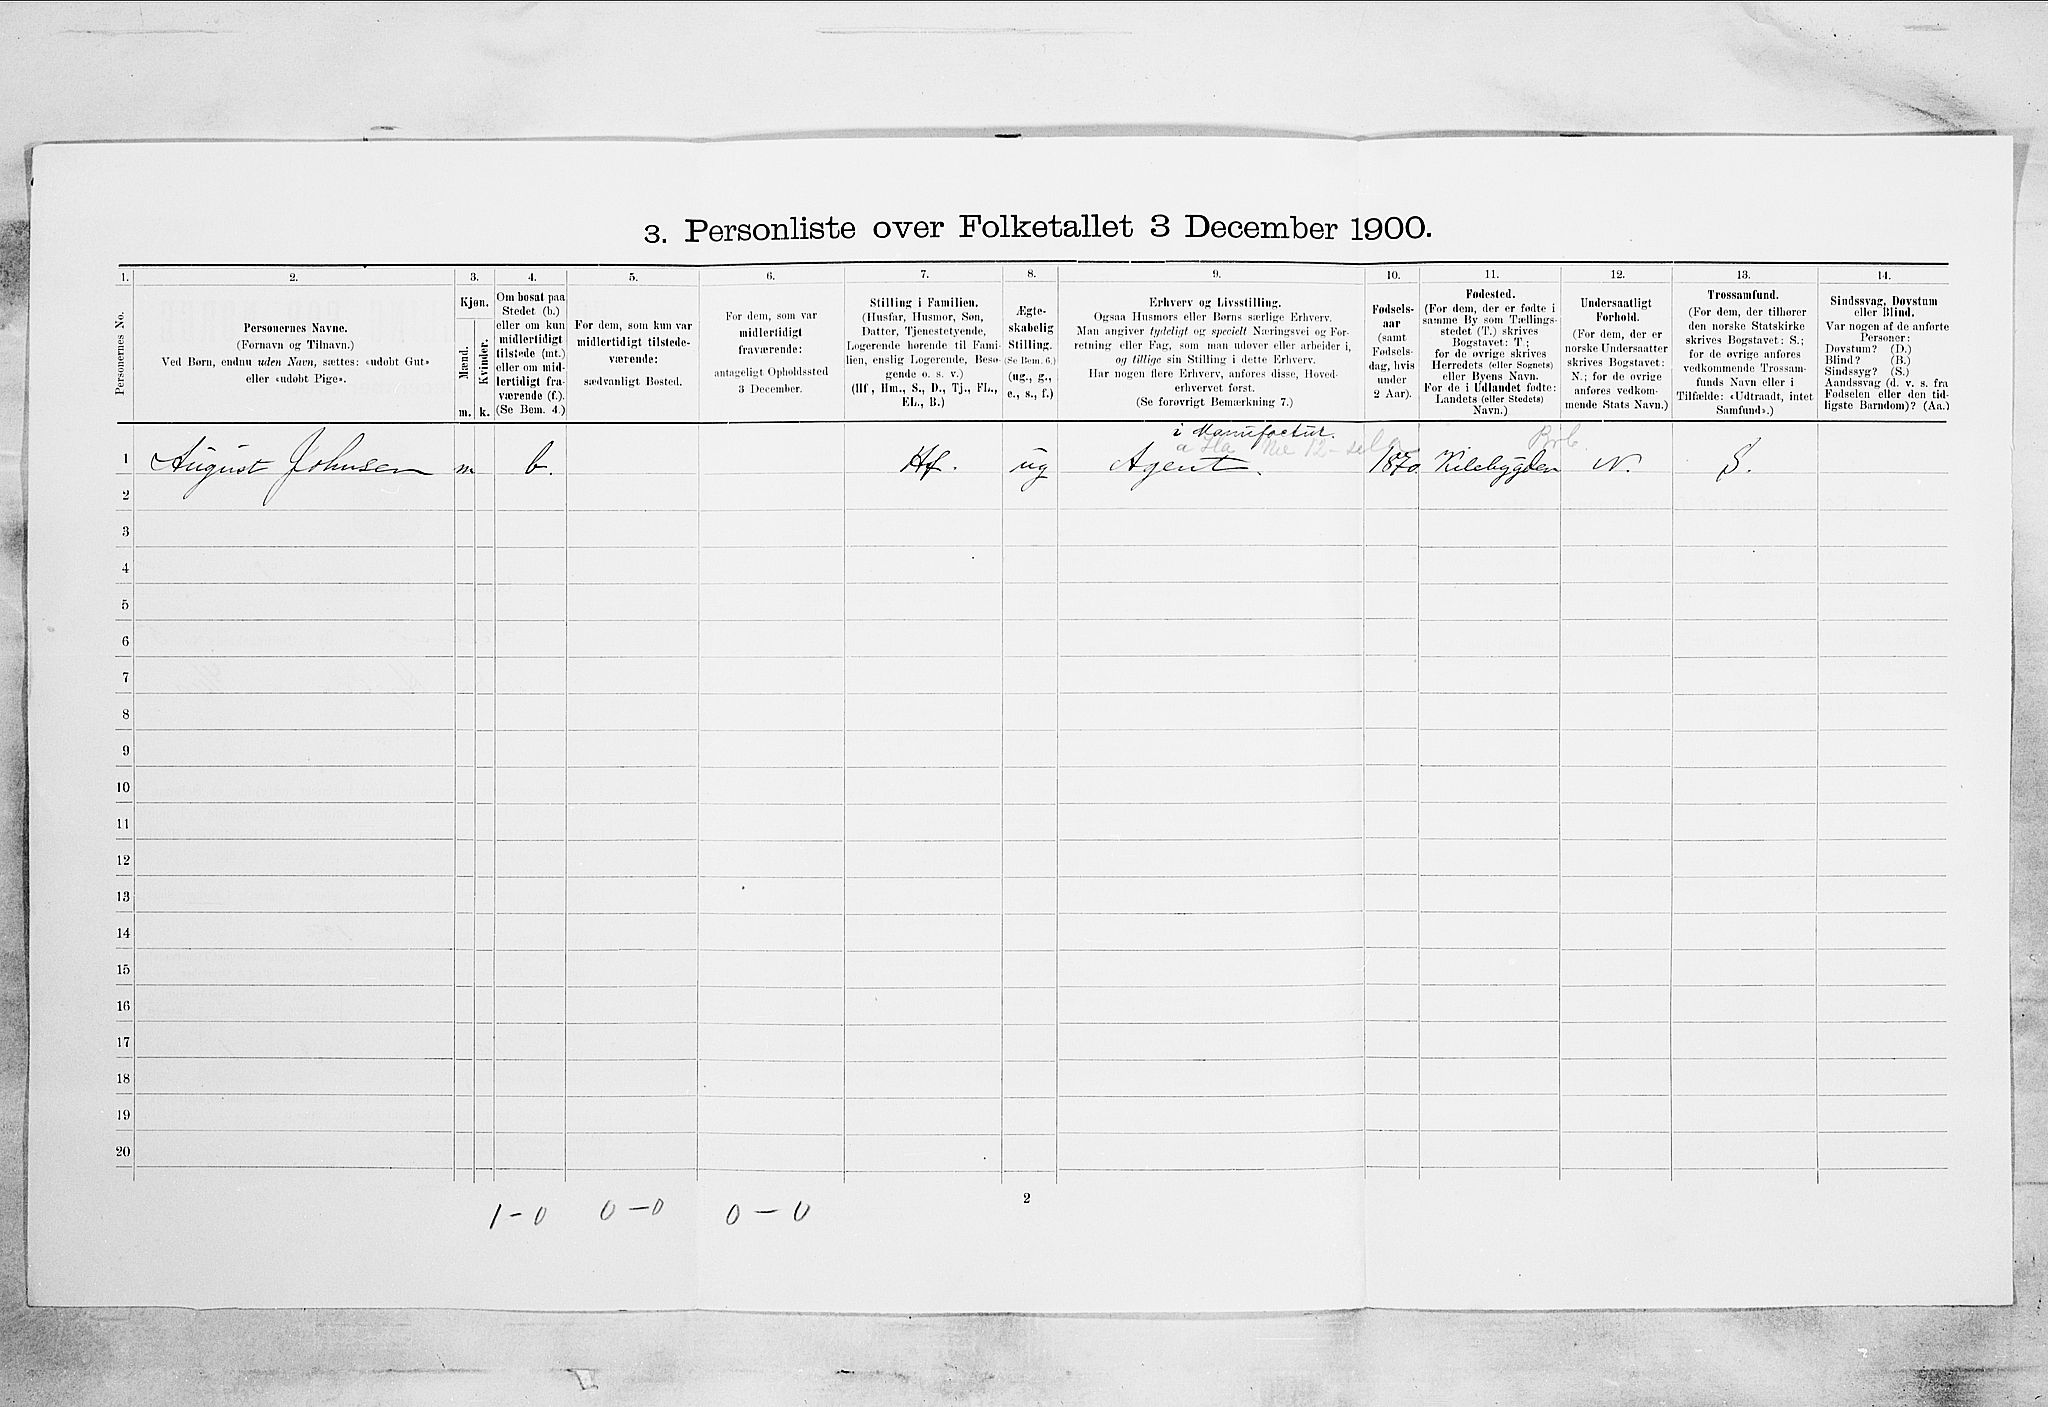 3. Personliste over Folketallet 3 December 1900.
1. 2. 3. 4. 5. 6. 7. 8. 9. 10. 11. 12. 13. 14.
Personernes No.
Personernes Navne.
(Fornavn og Tilnavn.)
Ved Børn, endnu uden Navn, sættes: «udøbt Gut»
eller «udøbt Pige».
Kjøn.
Mænd.
Kvinder.
m. k.
Om bosat paa
Stedet (b.)
eller om kun
midlertidigt
tilstede (mt.)
eller om mid-
lertidigt fra-
værende (f.).
(Se Bem. 4.)
For dem, som kun var
midlertidigt tilstede-
værende:
sædvanligt Bosted.
For dem, som var
midlertidigt
fraværende:
antageligt Opholdssted
3 December.
Stilling i Familien.
(Husfar, Husmor, Søn,
Datter, Tjenestetyende,
Logerende hørende til Fami-
lien, enslig Logerende, Besø-
gende o. s. v.)
(Hf, Hm., S., D., Tj., FL.,
EL., B.)
Ægte-
skabelig
Stilling.
(Se Bem. 6.)
(ug., g.,
e., s., f.)
Erhverv og Livsstilling.
Ogsaa Husmors eller Børns særlige Erhverv.
Man angiver tydeligt og specielt Næringsvei og For-
retning eller Fag, som man udøver eller arbeider i,
og tillige sin Stilling i dette Erhverv.
Har nogen flere Erhverv, anføres disse, Hoved-
erhvervet først.
(Se forøvrigt Bemærkning 7.)
Fødsels-
aar
(samt
Fødsels-
dag, hvis
under
2 Aar).
Fødested.
(For dem, der er fødte i
samme By som Tællings-
stedet (T.) skrives
Bogstavet: T.;
for de øvrige skrives
Herredets (eller Sognets)
eller Byens Navn.
For de i Udlandet fødte:
Landets (eller Stedets)
Navn.)
Undersaatligt
Forhold.
(For dem, der er
norske Undersaatter
skrives Bogstavet:
N.; for de øvrige
anføres vedkom-
mende Stats Navn.)
Trossamfund.
(For dem, der tilhører
den norske Statskirke
skrives Bogstavet: S.;
for de øvrige anføres
vedkommende Trossam-
funds Navn eller i
Tilfælde: «Udtraadt, intet
Samfund».)
Sindssvag, Døvstum
eller Blind.
Var nogen af de anførte
Personer:
Døvstum? (D.)
Blind? (B.)
Sindssyg? (S.)
Aandssvag (d. v. s. fra
Fødselen eller den tid-
ligste Barndom)? (Aa.)
i Manufactur.
1 August Johnsen m b. Hf. ug Agent. 1870 Kilebygden N. S.
2
3
4
5
6
7
8
9
10
11
12
13
14
15
16
17
18
19
20
1-0 0-0 0-0
2